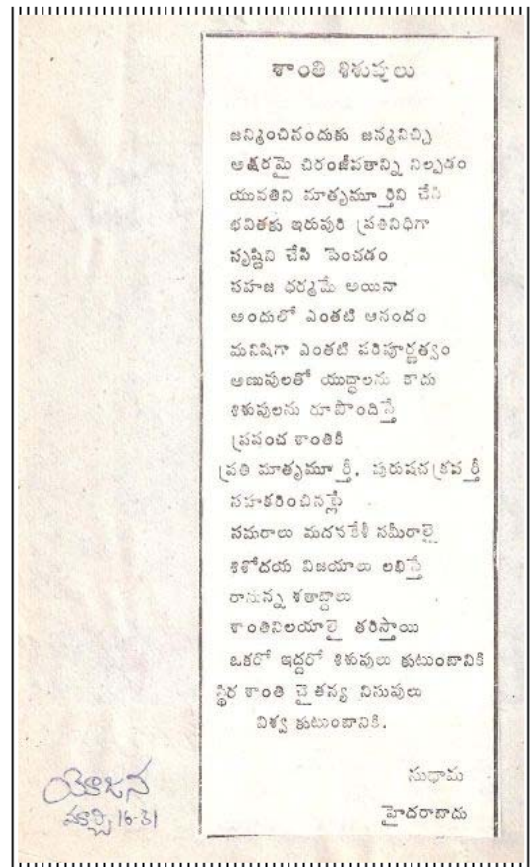 శాంతి శిశువులు
జన్మించినందుకు జన్మనిచ్చి
అక్షరమై చిరంజీవతాన్ని నిల్పడం
యువతిని మాతృమూర్తిని చేసి
భవితకు ఇరువురి ప్రతినిధిగా
సృష్టిని చేసి పెంచడం
సహజ ధర్మమే అయినా
అందులో ఎంతటి ఆనందం
మనిషిగా ఎంతటి పరిపూర్ణత్వం
అణువులతో యుద్ధాలను కాదు
శిశువులను రూపొందిస్తే
ప్రపంచ శాంతికి
ప్రతి మాతృమూర్తీ, పురుషచక్రవర్తీ
సహకరించినట్లే
సమరాలు మదనకేళీ సమీరాలై
శిశోదయ విజయాలు లభిస్తే
రానున్న శతాబ్దాలు
శాంతినిలయాలై తరిస్తాయి
ఒకరో ఇద్దరో శిశువులు కుటుంబానికి
స్థిర శాంతి చైతన్య నిసువులు
విశ్వ కుటుంబానికి.
సుధామ
హైదరాబాదు
యోజన
మార్చి 16-31